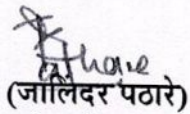 (जालिंदर पठारे)